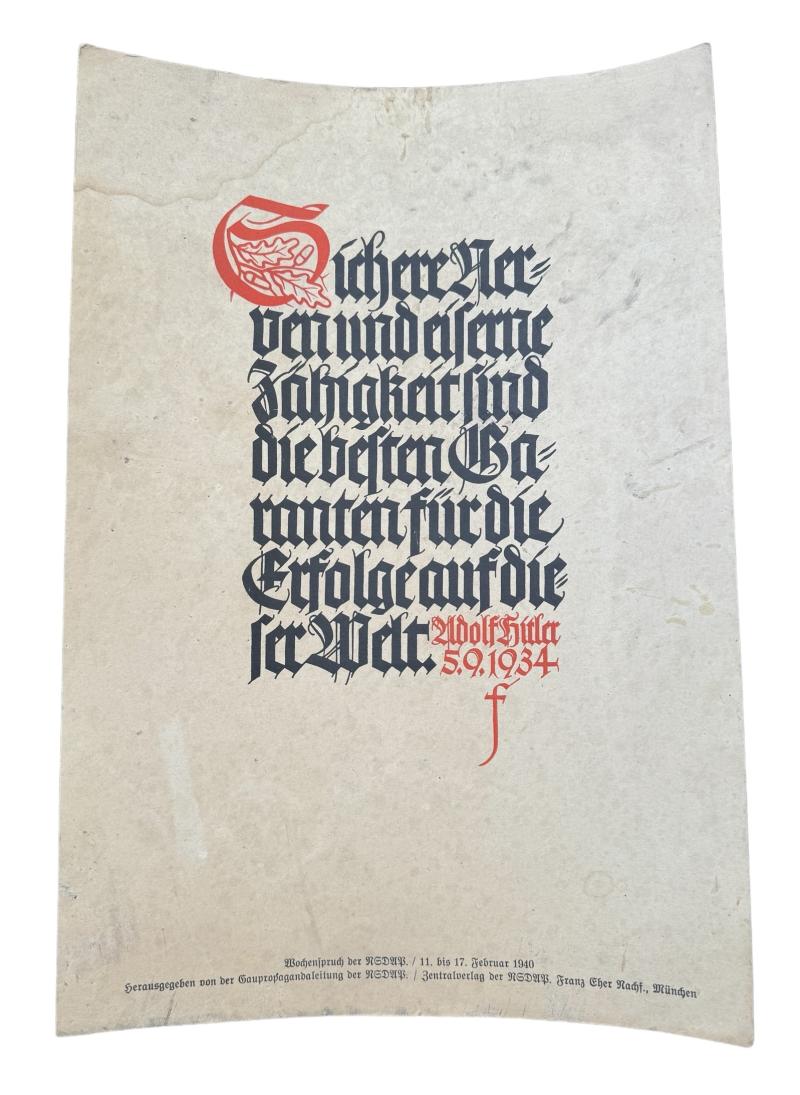 Sichere Ner=
ven und eiserne
Zähigkeit sind
die besten Ga=
ranten für die
Erfolge auf die=
ser Welt. Adolf Hitler
5.9.1934
Wochenspruch der NSDAP. / 11. bis 17. Februar 1940
Herausgegeben von der Gaupropagandaleitung der NSDAP. / Zentralverlag der NSDAP. Franz Eher Nachf., München